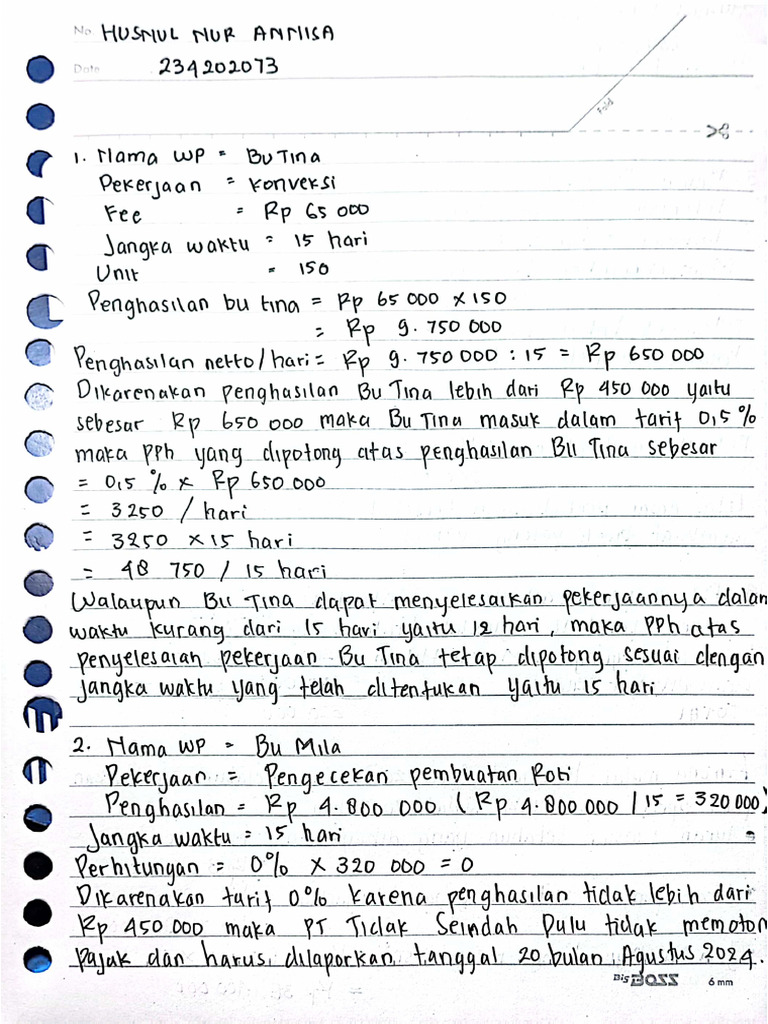 No. HUSNUL NUR ANNISA
Date 234202073
fold
1. Nama WP = Bu Tina
Pekerjaan = konveksi
Fee = Rp 65 000
Jangka waktu = 15 hari
Unit = 150
Penghasilan bu tina = Rp 65 000 x 150
= Rp 9.750 000
Penghasilan netto/hari = Rp 9.750 000 : 15 = Rp 650 000
Dikarenakan penghasilan Bu Tina lebih dari Rp 450 000 yaitu
sebesar Rp 650 000 maka Bu Tina masuk dalam tarif 0,5%
maka PPh yang dipotong atas penghasilan Bu Tina sebesar
= 0,5 % x Rp 650.000
= 3250 / hari
= 3250 x 15 hari
= 48 750 / 15 hari
Walaupun Bu Tina dapat menyelesaikan pekerjaannya dalam
waktu kurang dari 15 hari yaitu 12 hari, maka PPh atas
penyelesaian pekerjaan Bu Tina tetap dipotong sesuai dengan
jangka waktu yang telah ditentukan yaitu 15 hari
2. Nama WP = Bu Mila
Pekerjaan = Pengecekan pembuatan Roti
Penghasilan = Rp 4.800 000 (Rp 4.800 000 / 15 = 320 000)
Jangka waktu = 15 hari
Perhitungan = 0% x 320 000 = 0
Dikarenakan tarif 0% karena penghasilan tidak lebih dari
Rp 450 000 maka PT Tidak Seindah Dulu tidak memoton
pajak dan harus dilaporkan tanggal 20 bulan Agustus 2024.
Bis BOSS 6 mm